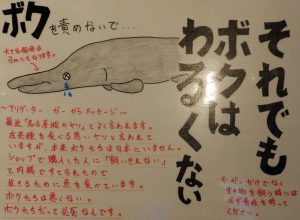 ボクを責めないで…
それでも
ボクは
わるくない
大きな個体は
3mにもなります。
〜アリゲーター・ガーからメッセージ〜
最近「名古屋城のヤリ」とよく言われます。
在来種を食べる悪いヤツと言われて
いますが、本来ボクたちは日本にいません。
ショップで購入した人に「飼いきれない」
と内堀にすてられたので
生きるために魚を食べています。
ボクたちは悪くない。
ボクたちだって必死なんです。
※ガーだけでなく
生き物を飼う時には
必ず責任を持って
ください。